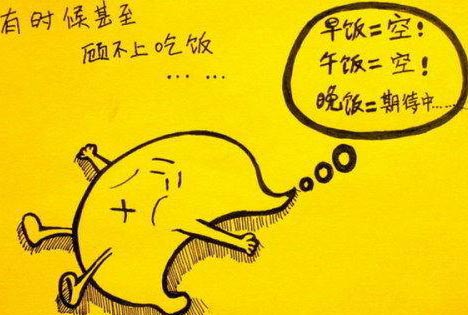 有时候甚至
顾不上吃饭
… …
早饭=空!
午饭=空!
晚饭=期待中……